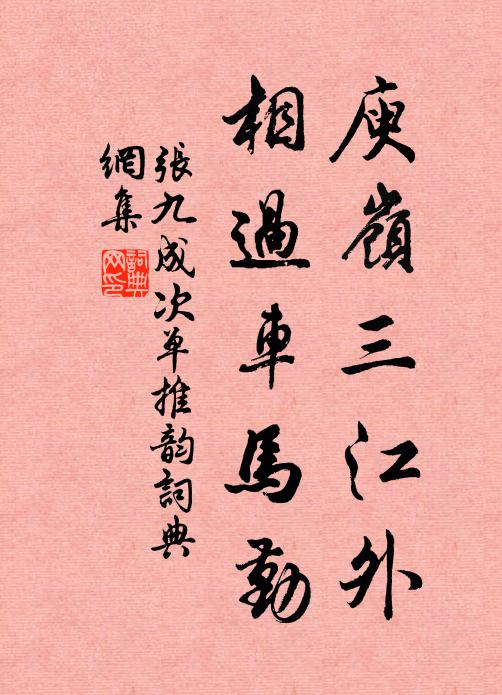 庾嶺三江外
相過車馬勤
張九成次单推韵詞典
網集
詞典
网印